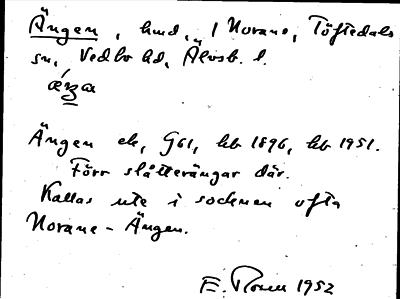 Ängen, hmd, i Norane, Töftedals
sn, Vedbo hd, Älvsb. l.
Ängen ek, G61, kb 1896, kb 1951.
Förr slåtterängar där.
Kallas ute i socknen ofta
Norane-Ängen.
E. 1952